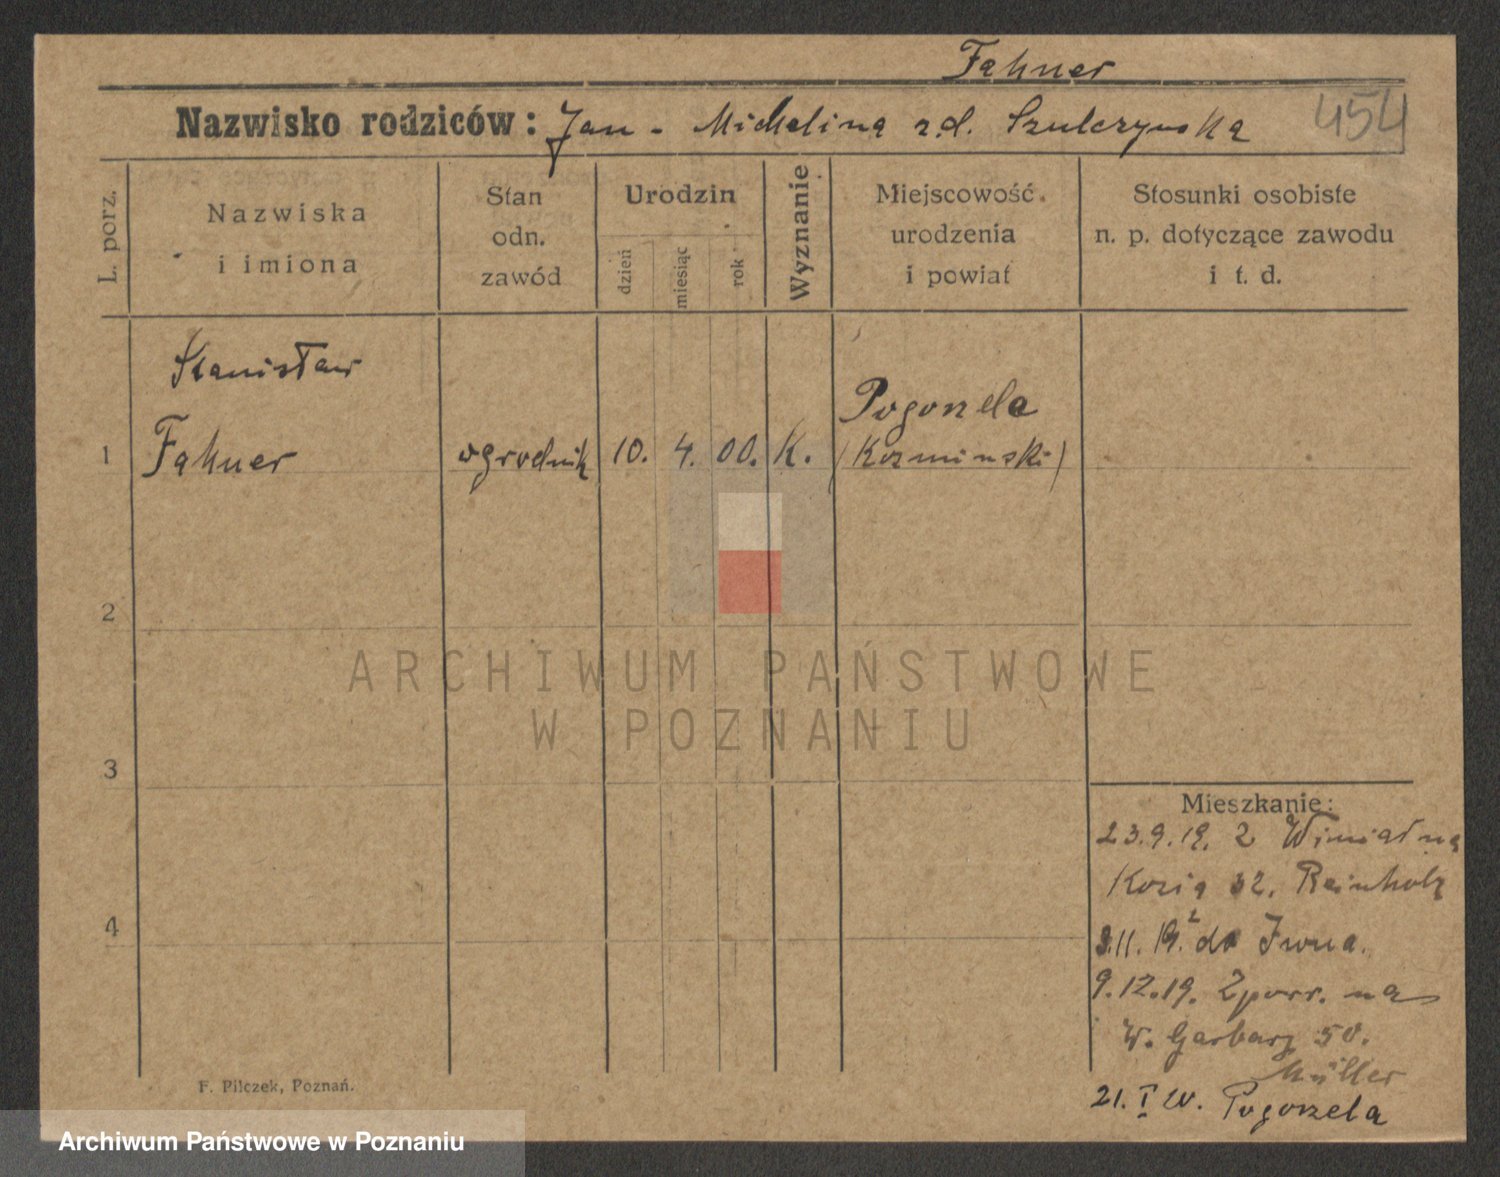 Fahner
Nazwisko rodziców: Jan - Michalina z.d. Szulczyńska
454
L. porz.
Nazwiska
i imiona
Stan
odn.
zawód
Urodzin
dzień
miesiąc
rok
Wyznanie
Miejscowość
urodzenia
i powiat
Stosunki osobiste
n. p. dotyczące zawodu
i t. d.
Stanisław
1 Fahner ogrodnik 10. 4. 00. K. Pogorzela
(Kozminski)
2
3
4
ARCHIWUM PAŃSTWOWE
W POZNANIU
Mieszkanie:
23.9.19. z
Kozia 32. Reinholz
11. 19. do Iwna.
9.12.19. Zpowr. na
W. Garbary 50.
Müller
21. I 20. Pogorzela
F. Pilczek, Poznań.
Archiwum Państwowe w Poznaniu